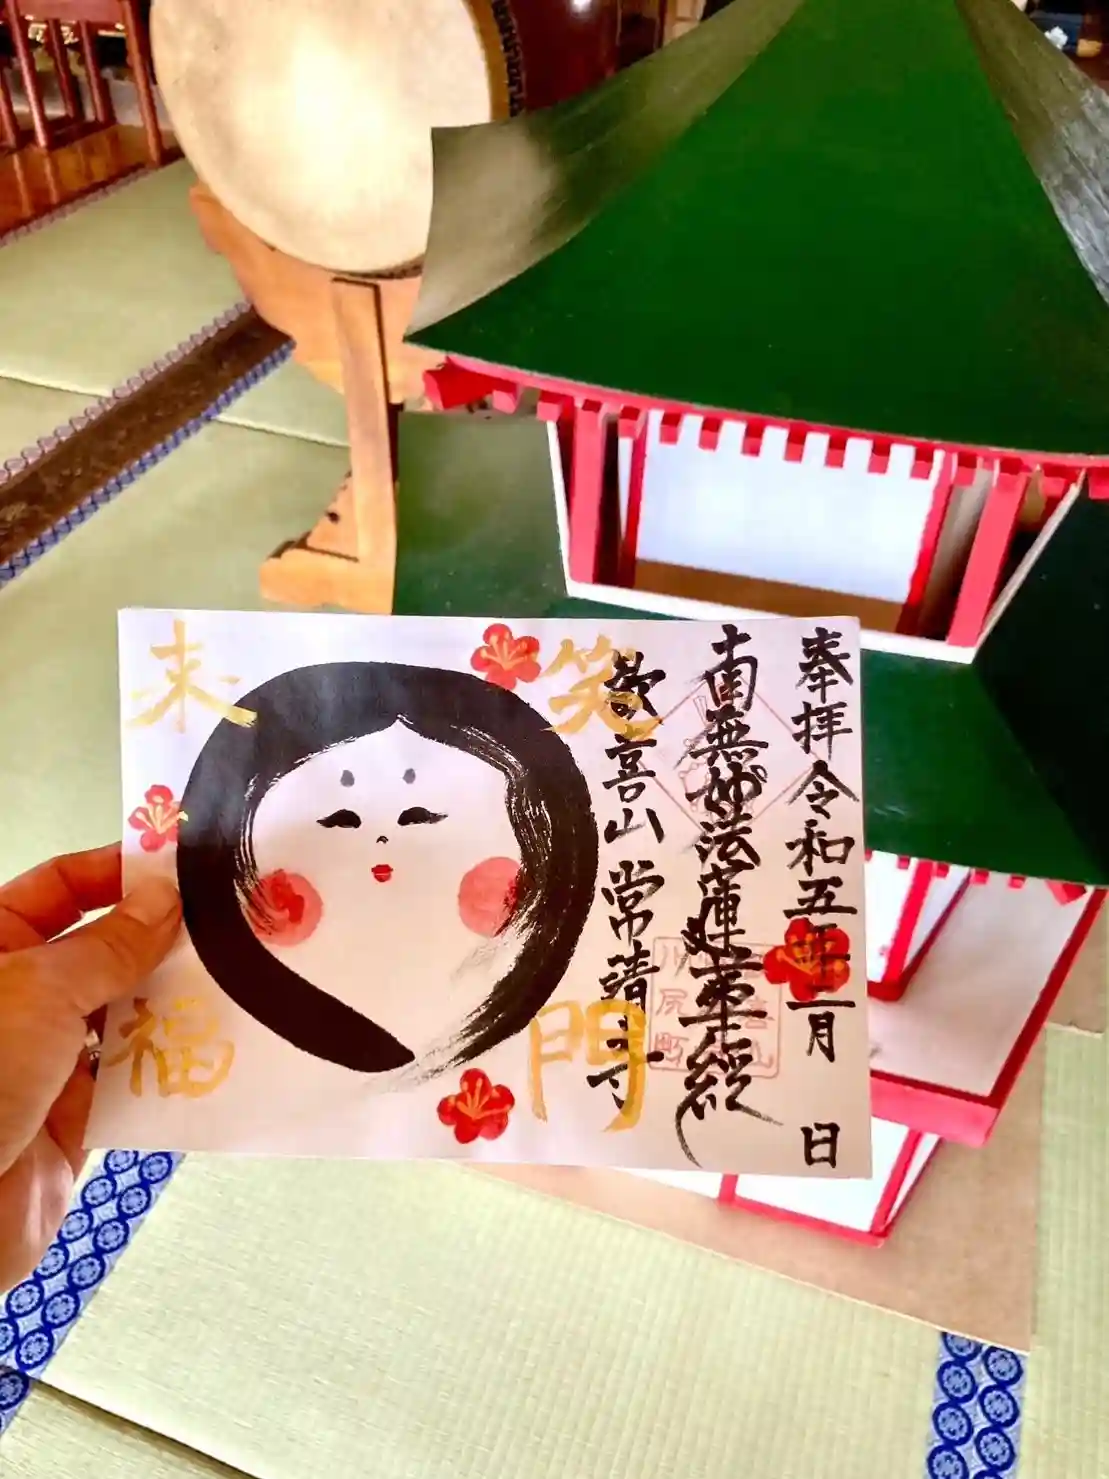 奉拝 令和五年二月 日
南無妙法蓮華経
歓喜山 常清寺
笑門
来福
川尻町